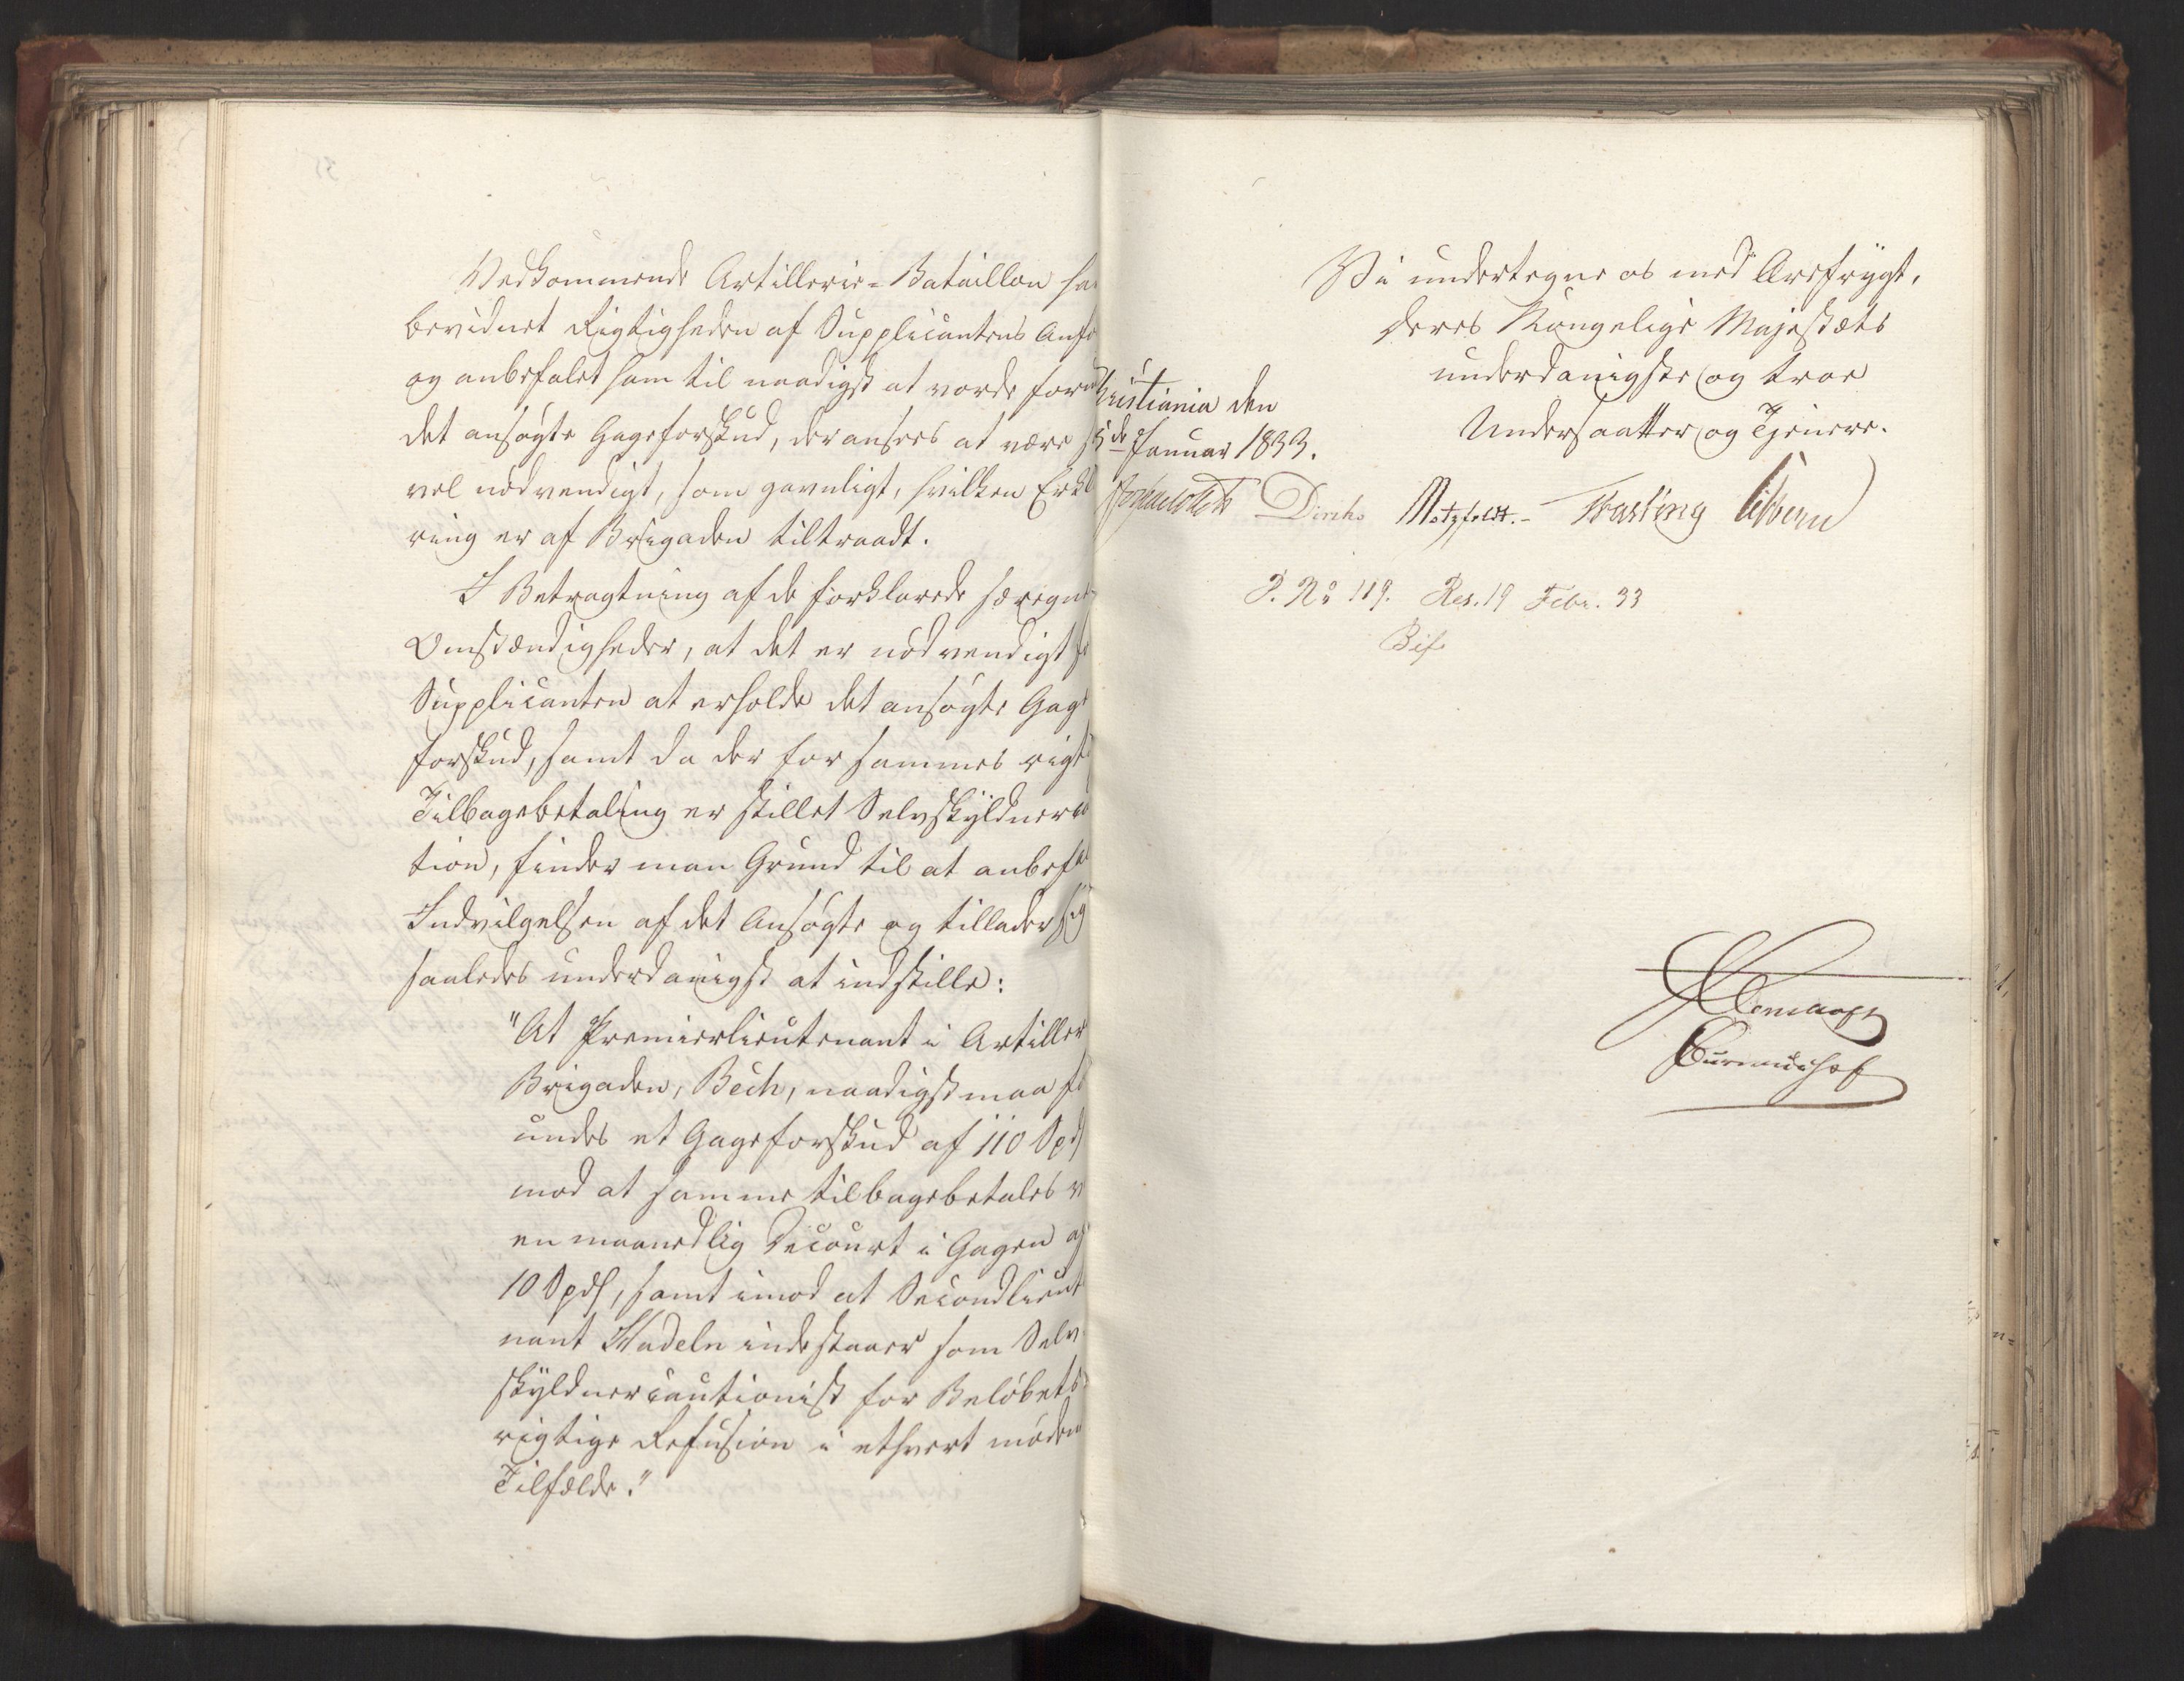 Vedkommende Artillerie-Bataillon ha
bevidnet Rigtigheden af Supplicantens Anfø
og anbefalet ham til naadigst at vorde forun
det ansøgte Gageforskud, der ansees at være s
vel nødvendigt, som gavnligt, hvilken Erkl
ring er af Brigaden tiltraadt.
I Betragtning af de forklarede særegne
Omstændigheder, at det er nødvendigt fo
Supplicanten at erholde det ansøgte Gage
forskud, samt da der for sammes rigti
Tilbagebetaling er stillet Selvskyldnerca
tion, finder man Grund til at anbefal
Indvilgelsen af det Ansøgte og tillader sig
saaledes underdanigst at indstille:
"At Premierlieutenant i Artilleri
Brigaden, Bech, naadigst maa fo
undes et Gageforskud af 110 Spd
mod at samme tilbagebetales v
en maanedlig Decourt i Gagen af
10 Spd, samt imod at Secondlieut
nant Hadeln indestaaer som Selv
skyldnercautionist for Beløbets
rigtige Refusion i ethvert møden
Tilfælde."
Vi undertegne os med Ærefrygt,
Deres Kongelige Majestæts
underdanigste og troe
Undersaatter og Tjenere.
hristiania den
5de Januar 1833.
Diriks Motzfeldt.- Fasting Sibbern
P. No 119. Res. 19 Febr. 33
Bif